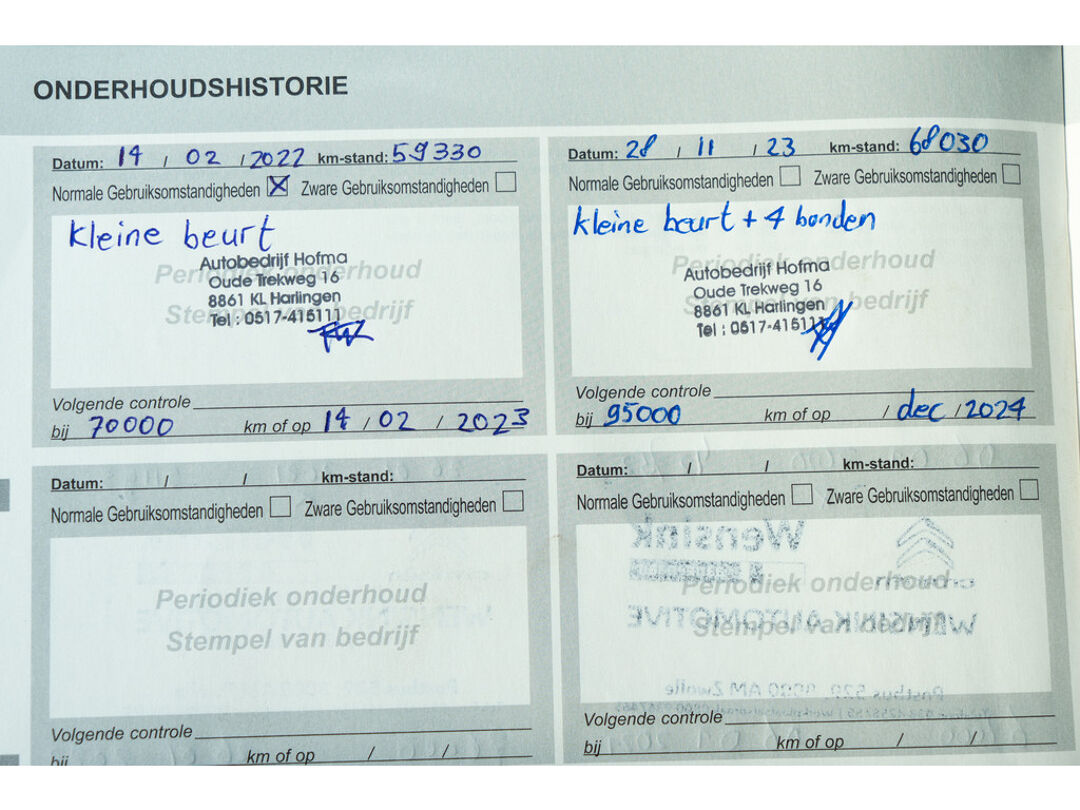 ONDERHOUDSHISTORIE
Datum: 14 / 02 / 2022 km-stand: 59330
Normale Gebruiksomstandigheden ☒ Zware Gebruiksomstandigheden ☐
kleine beurt
Periodiek onderhoud
Stempel van bedrijf
Autobedrijf Hofma
Oude Trekweg 16
8861 KL Harlingen
Tel : 0517-415111
Volgende controle
bij 70000 km of op 14 / 02 / 2023
Datum: 28 / 11 / 23 km-stand: 68030
Normale Gebruiksomstandigheden ☐ Zware Gebruiksomstandigheden ☐
kleine beurt + 4 banden
Periodiek onderhoud
Stempel van bedrijf
Autobedrijf Hofma
Oude Trekweg 16
8861 KL Harlingen
Tel : 0517-415111
Volgende controle
bij 95000 km of op / dec / 2024
Datum: / / km-stand:
Normale Gebruiksomstandigheden ☐ Zware Gebruiksomstandigheden ☐
Periodiek onderhoud
Stempel van bedrijf
Volgende controle
bij km of op / /
Datum: / / km-stand:
Normale Gebruiksomstandigheden ☐ Zware Gebruiksomstandigheden ☐
Wensink
Periodiek onderhoud
WENSINK AUTOMOTIVE
Stempel van bedrijf
Volgende controle
bij km of op / /